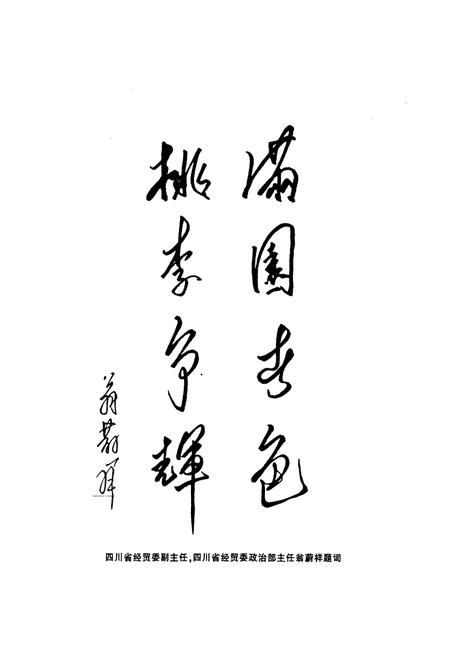 满园春色
桃李争辉
翁蔚祥
四川省经贸委副主任,四川省经贸委政治部主任翁蔚祥题词